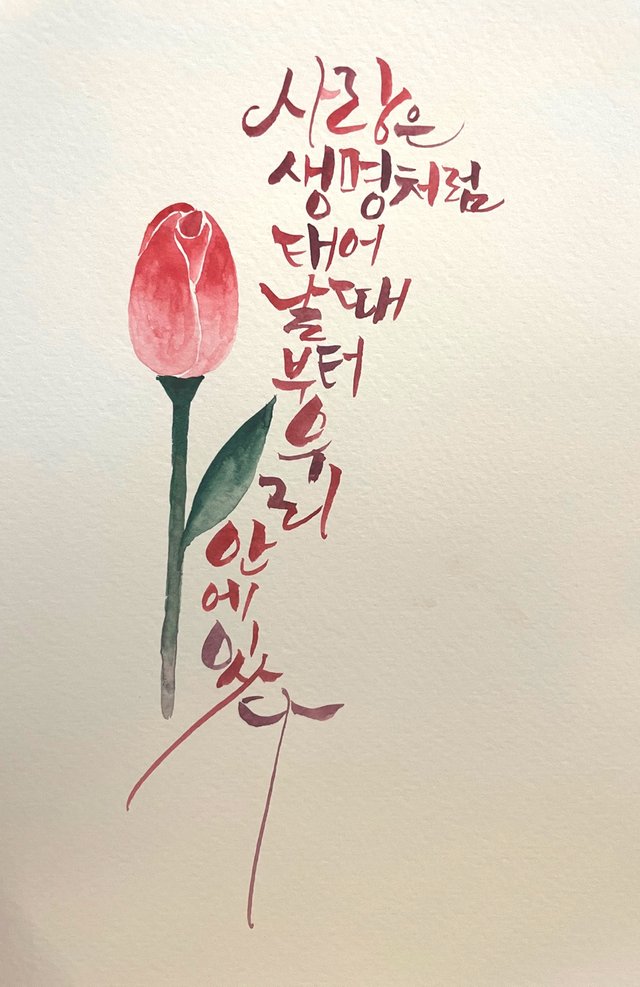 사랑은
생명처럼
태어
날때
부터
우
리
안
에
있
다